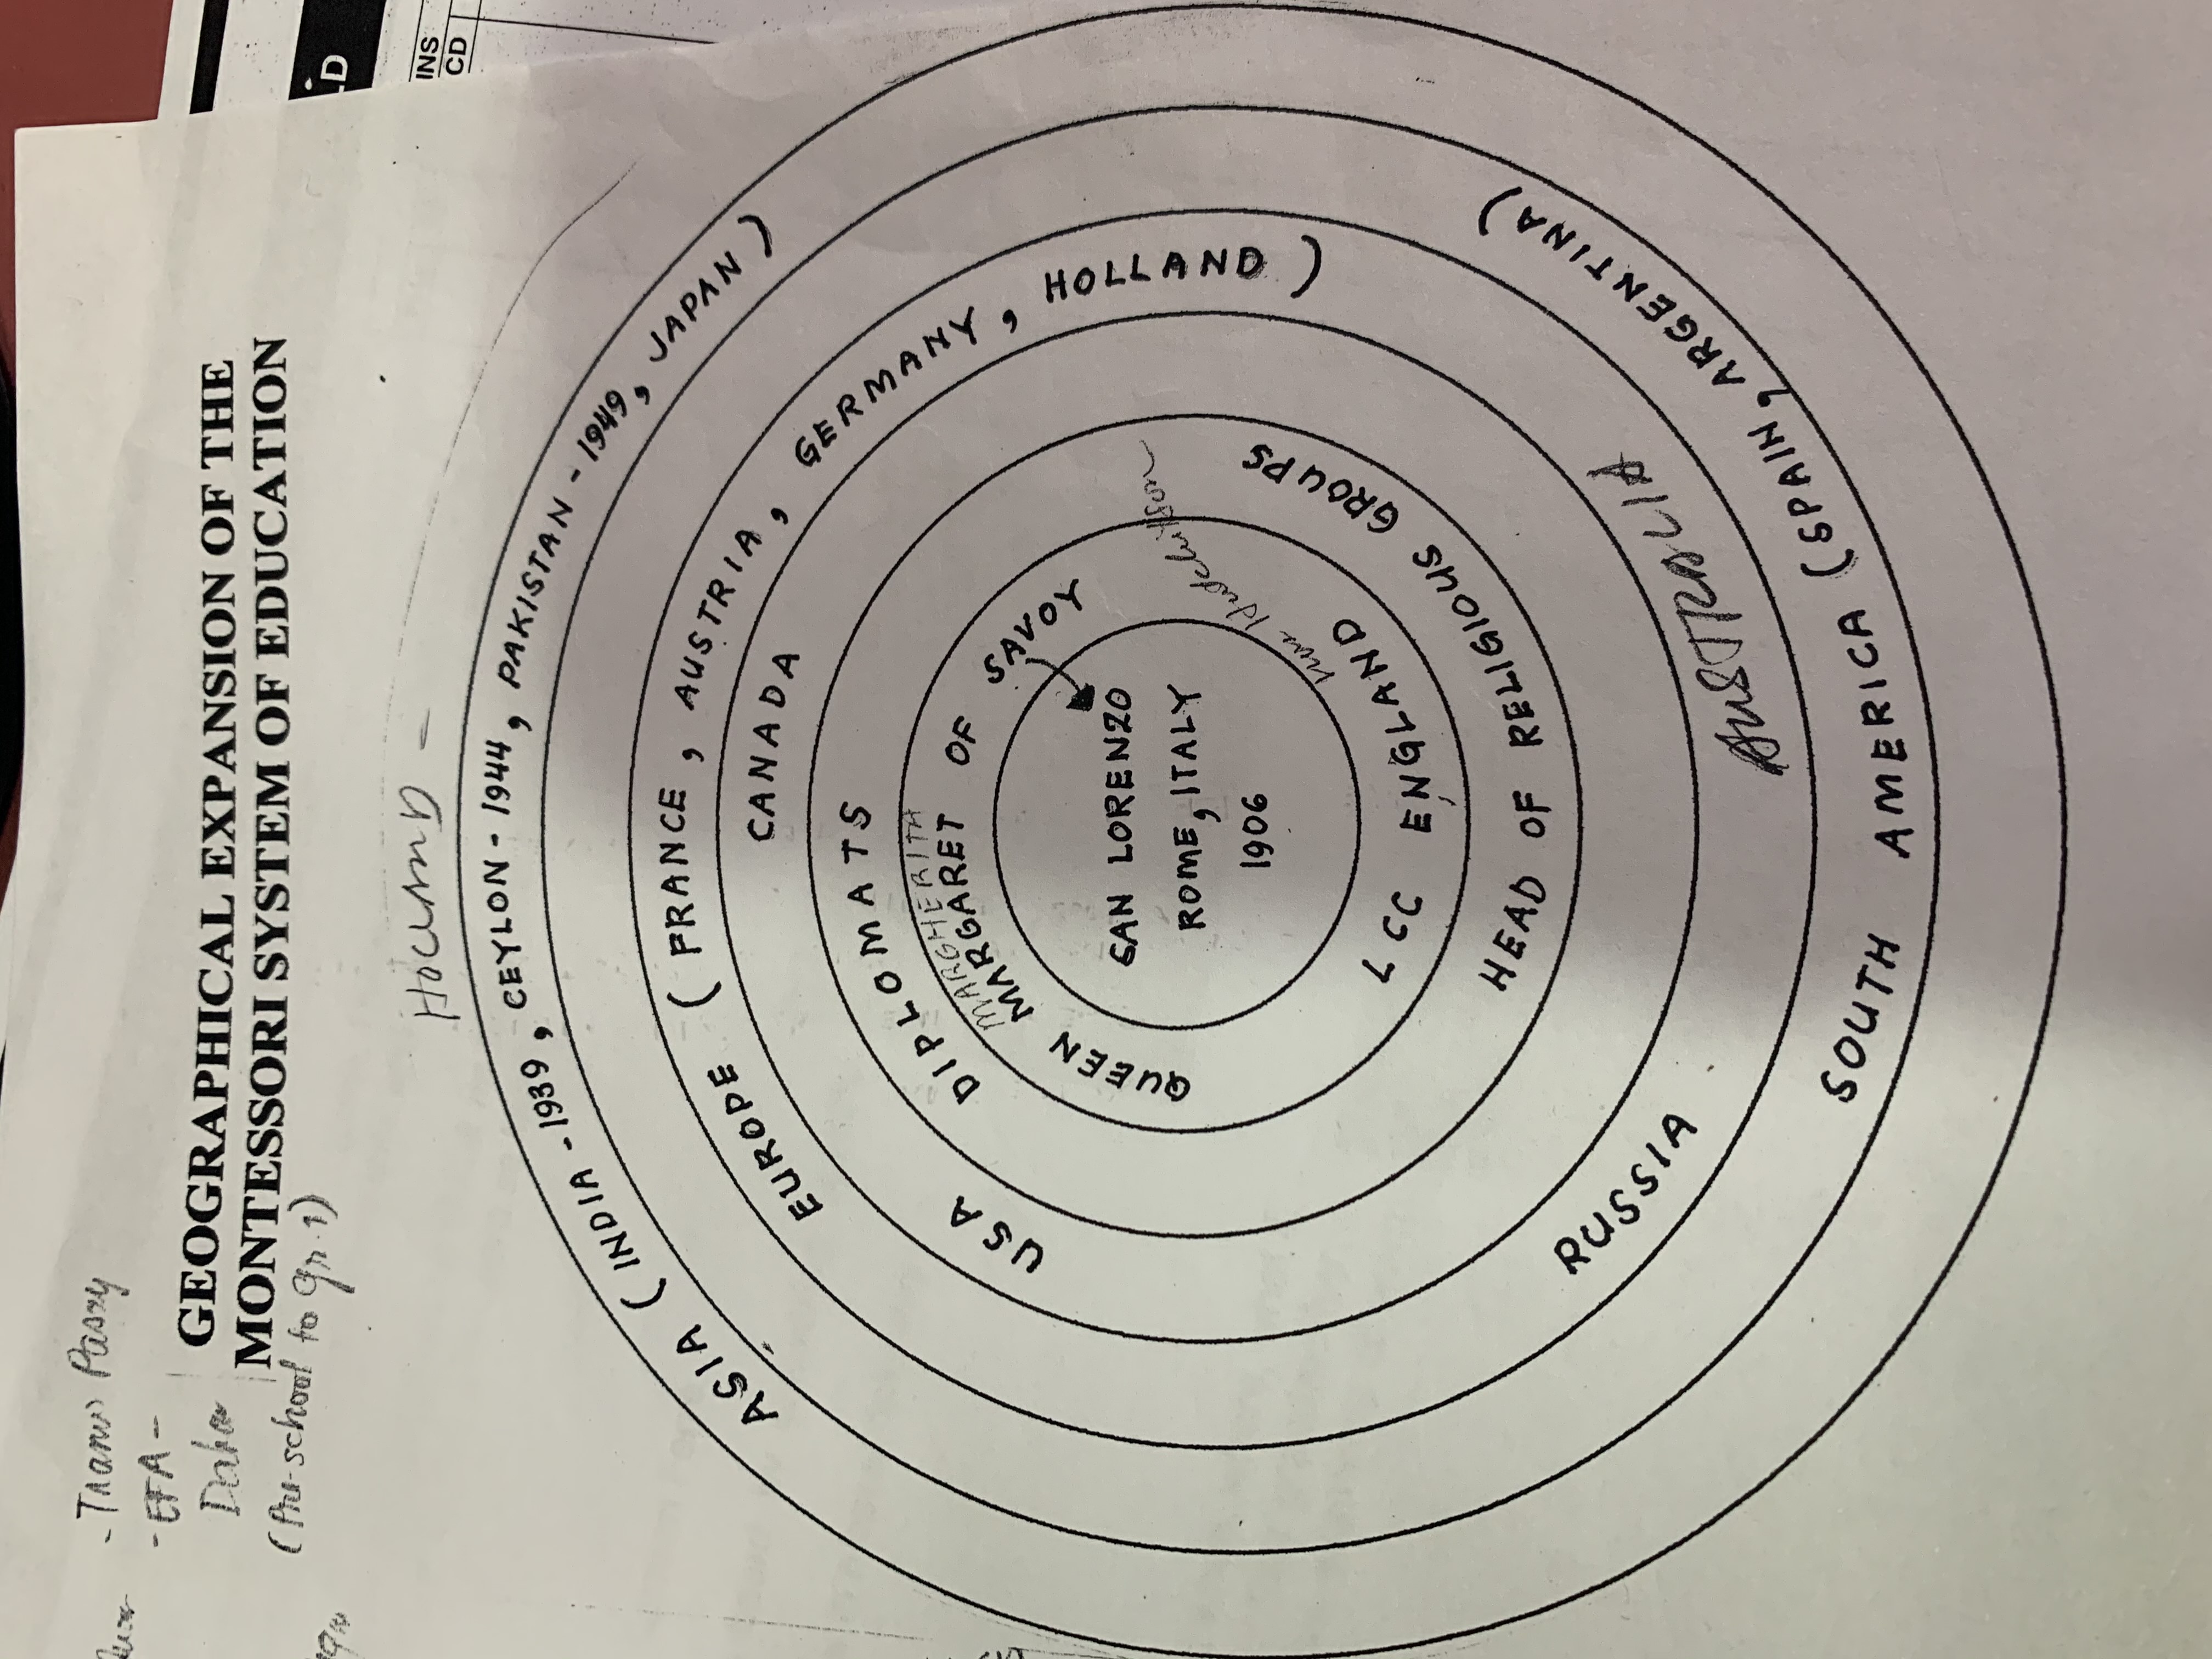 - EFA -
GEOGRAPHICAL EXPANSION OF THE
MONTESSORI SYSTEM OF EDUCATION
(Pre-school to gr. 1)
HOLLAND -
ASIA (INDIA - 1939, CEYLON - 1944, PAKISTAN - 1949, JAPAN)
EUROPE (FRANCE, AUSTRIA, GERMANY, HOLLAND)
CANADA
USA
DIPLOMATS
MARGHERITA
QUEEN MARGARET OF SAVOY
SAN LORENZO
ROME, ITALY
1906
LCC ENGLAND
HEAD OF RELIGIOUS GROUPS
RUSSIA
AUSTRALIA
SOUTH AMERICA (SPAIN, ARGENTINA)
LD
INS
CD